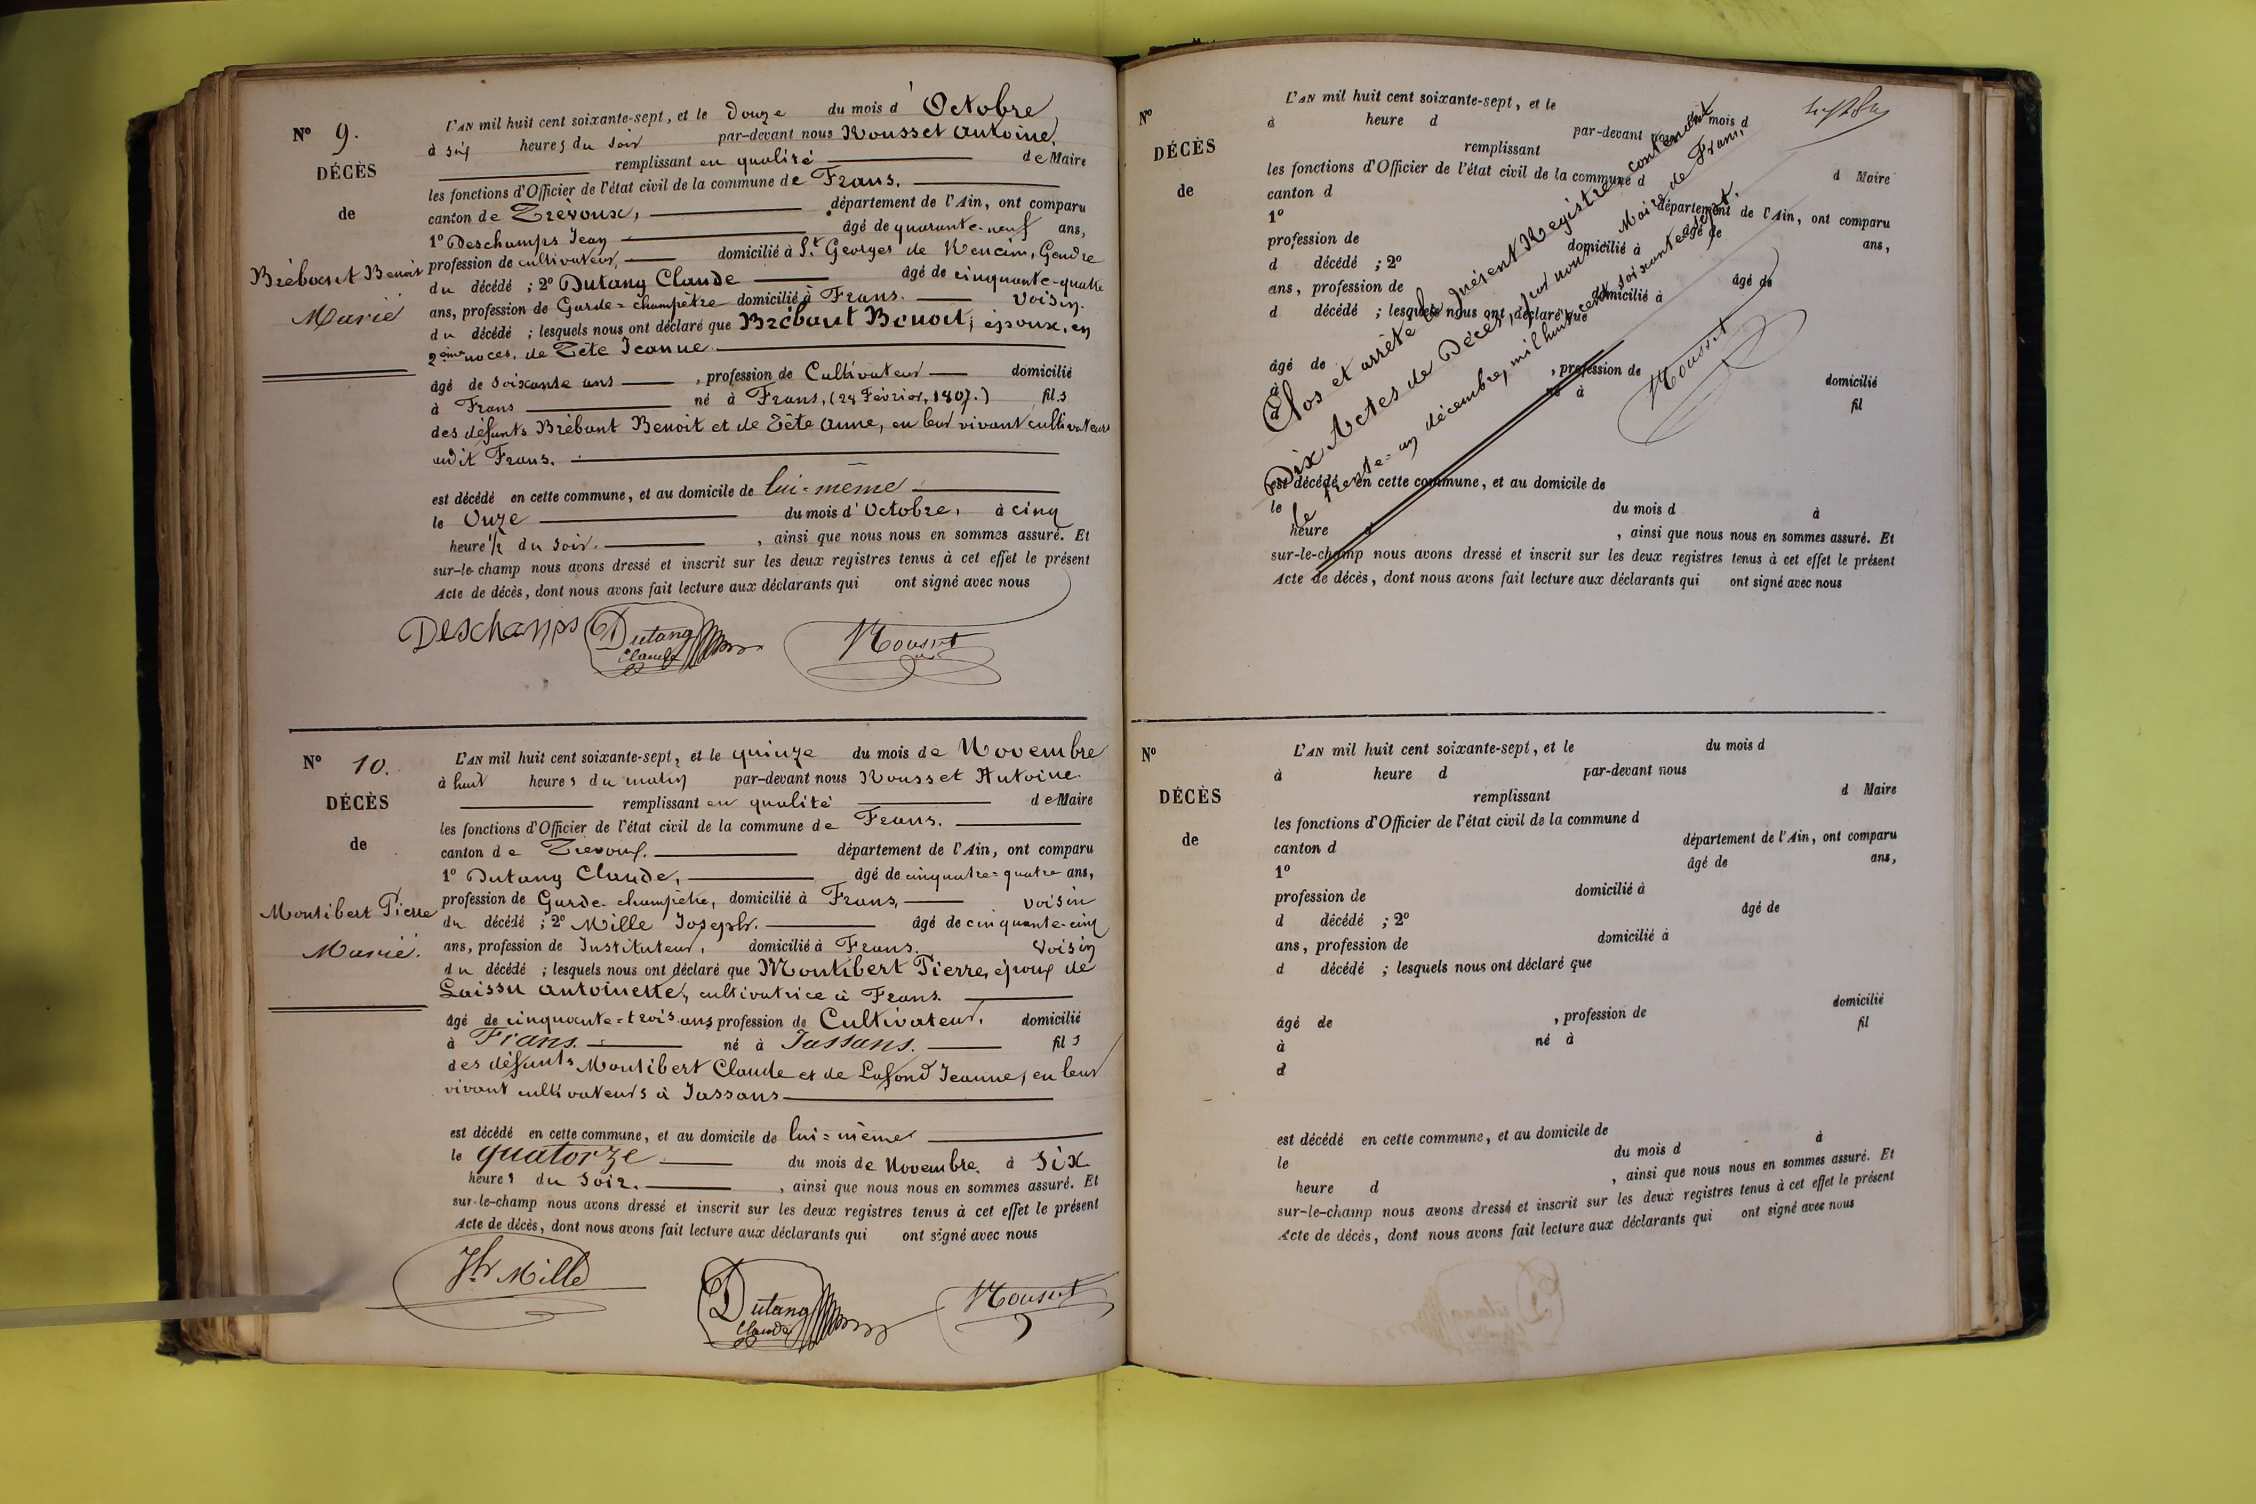 N° 9.
DÉCÈS
de
Brébant Benoit
Marié
L'AN mil huit cent soixante-sept, et le Douze du mois d'Octobre
à six heures du soir par-devant nous Rousset Antoine,
remplissant en qualité de Maire
les fonctions d'Officier de l'état civil de la commune de Frans.
canton de Trévoux, département de l'Ain, ont comparu
1° Deschamps Jean âgé de quarante-neuf ans,
profession de cultivateur, domicilié à St Georges de Rencins, Gendre
du décédé ; 2° Dutang Claude âgé de cinquante-quatre
ans, profession de Garde=champêtre domicilié à Frans. Voisin.
du décédé ; lesquels nous ont déclaré que Brébant Benoit, époux, en
2èmes noces, de Tête Jeanne.
âgé de soixante ans, profession de Cultivateur domicilié
à Frans né à Frans, (24 Février, 1807.) fils
des défunts Brébant Benoit et de Tête Anne, en leur vivant cultivateurs
audit Frans.
est décédé en cette commune, et au domicile de lui=même
le Onze du mois d'Octobre, à cinq
heure 1/2 du soir. , ainsi que nous nous en sommes assuré. Et
sur-le-champ nous avons dressé et inscrit sur les deux registres tenus à cet effet le présent
Acte de décès, dont nous avons fait lecture aux déclarants qui ont signé avec nous
Deschamps Dutang Claude Rousset
N° 10.
DÉCÈS
de
Montibert Pierre
Marié.
L'AN mil huit cent soixante-sept, et le quinze du mois de Novembre
à huit heures du matin par-devant nous Rousset Antoine
remplissant en qualité de Maire
les fonctions d'Officier de l'état civil de la commune de Frans.
canton de Trévoux. département de l'Ain, ont comparu
1° Dutang Claude, âgé de cinquante=quatre ans,
profession de Garde-champêtre, domicilié à Frans, voisin
du décédé ; 2° Mille Joseph. âgé de cinquante-cinq
ans, profession de Instituteur, domicilié à Frans. Voisin
du décédé ; lesquels nous ont déclaré que Montibert Pierre, époux de
Laissu Antoinette, cultivatrice à Frans.
âgé de cinquante=trois ans profession de Cultivateur, domicilié
à Frans. né à Jassans. fils
des défunts Montibert Claude et de Lafond Jeanne, en leur
vivant cultivateurs à Jassans
est décédé en cette commune, et au domicile de lui=même
le quatorze du mois de Novembre à six
heures du soir. , ainsi que nous nous en sommes assuré. Et
sur-le-champ nous avons dressé et inscrit sur les deux registres tenus à cet effet le présent
Acte de décès, dont nous avons fait lecture aux déclarants qui ont signé avec nous
Jh Mille Dutang Claude Rousset
N°
DÉCÈS
de
L'AN mil huit cent soixante-sept, et le du mois d
à heure d par-devant nous
remplissant d Maire
les fonctions d'Officier de l'état civil de la commune d
canton d département de l'Ain, ont comparu
1° âgé de ans,
profession de domicilié à
d décédé ; 2° âgé de
ans, profession de domicilié à
d décédé ; lesquels nous ont déclaré que
âgé de , profession de domicilié
à né à fil
d
est décédé en cette commune, et au domicile de
le du mois d à
heure d , ainsi que nous nous en sommes assuré. Et
sur-le-champ nous avons dressé et inscrit sur les deux registres tenus à cet effet le présent
Acte de décès, dont nous avons fait lecture aux déclarants qui ont signé avec nous
Clos et arrêté le présent Registre, contenant
Dix Actes de Décès, par nous Maire de Frans,
le trente=un décembre, mil huit cent soixante sept.
Rousset
N°
DÉCÈS
de
L'AN mil huit cent soixante-sept, et le du mois d
à heure d par-devant nous
remplissant d Maire
les fonctions d'Officier de l'état civil de la commune d
canton d département de l'Ain, ont comparu
1° âgé de ans,
profession de domicilié à
d décédé ; 2° âgé de
ans, profession de domicilié à
d décédé ; lesquels nous ont déclaré que
âgé de , profession de domicilié
à né à fil
d
est décédé en cette commune, et au domicile de
le du mois d à
heure d , ainsi que nous nous en sommes assuré. Et
sur-le-champ nous avons dressé et inscrit sur les deux registres tenus à cet effet le présent
Acte de décès, dont nous avons fait lecture aux déclarants qui ont signé avec nous